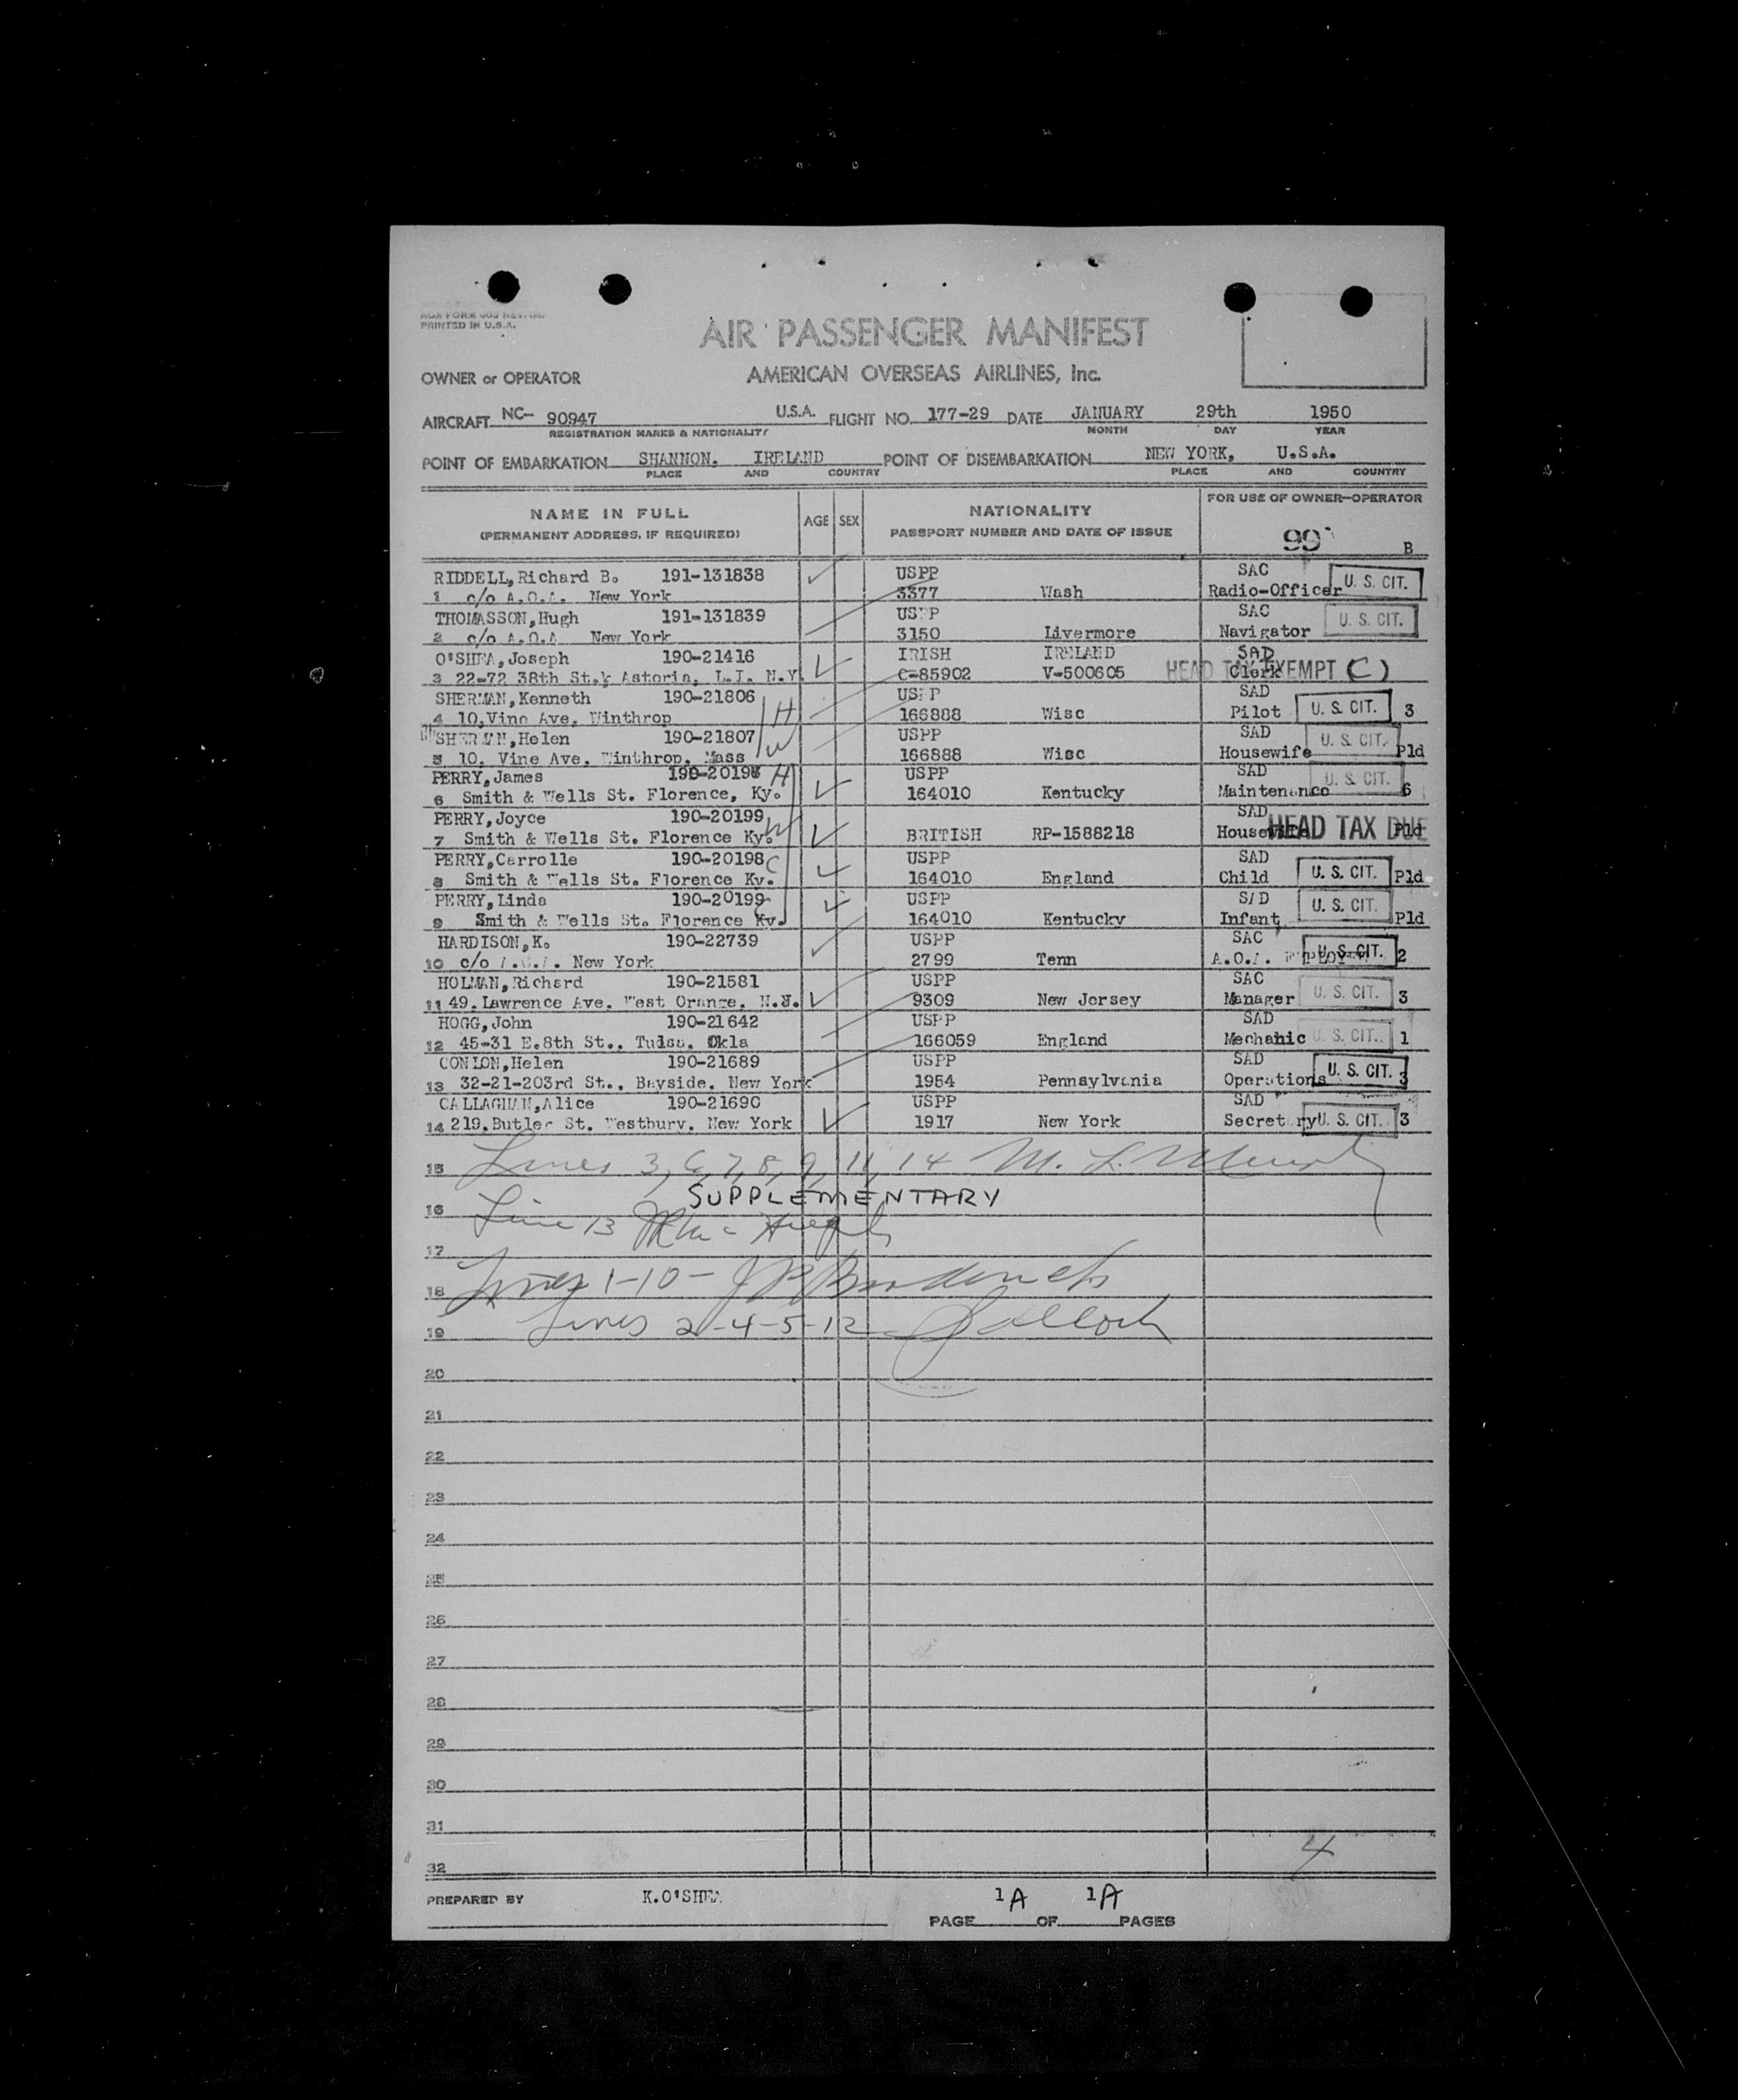 PRINTED IN U.S.A.
AIR PASSENGER MANIFEST
OWNER or OPERATOR AMERICAN OVERSEAS AIRLINES, Inc.
AIRCRAFT NC- 90947 U.S.A. FLIGHT NO. 177-29 DATE JANUARY 29th 1950
REGISTRATION MARKS & NATIONALITY MONTH DAY YEAR
POINT OF EMBARKATION SHANNON. IRELAND POINT OF DISEMBARKATION NEW YORK, U.S.A.
PLACE AND COUNTRY PLACE AND COUNTRY
NAME IN FULL AGE SEX NATIONALITY FOR USE OF OWNER-OPERATOR
(PERMANENT ADDRESS, IF REQUIRED) PASSPORT NUMBER AND DATE OF ISSUE 99 B
RIDDELL, Richard B. 191-131838 USPP SAC U. S. CIT.
1 c/o A.O.A. New York 3377 Wash Radio-Officer
THOMASSON, Hugh 191-131839 USPP SAC U. S. CIT.
2 c/o A.O.A New York 3150 Livermore Navigator
O'SHEA, Joseph 190-21416 IRISH IRELAND SAD
3 22-72 38th St., Astoria, L.I. N.Y. C-85902 V-500605 Clerk HEAD TAX EXEMPT (C)
SHERMAN, Kenneth 190-21806 H USPP SAD
4 10, Vine Ave. Winthrop 166888 Wisc Pilot U. S. CIT. 3
SHERMAN, Helen 190-21807 W USPP SAD U. S. CIT.
5 10. Vine Ave. Winthrop. Mass 166888 Wisc Housewife Pld
PERRY, James 190-20198 H USPP SAD U. S. CIT.
6 Smith & Wells St. Florence, Ky. 164010 Kentucky Maintenance 6
PERRY, Joyce 190-20199 W SAD
7 Smith & Wells St. Florence Ky. BRITISH RP-1588218 Housewife HEAD TAX DUE Pld
PERRY, Carrolle 190-20198 C USPP SAD
8 Smith & Wells St. Florence Ky. 164010 England Child U. S. CIT. Pld
PERRY, Linda 190-20199 USPP SAD U. S. CIT.
9 Smith & Wells St. Florence Ky. 164010 Kentucky Infant Pld
HARDISON, K. 190-22739 USPP SAC
10 c/o A.O.A. New York 2799 Tenn A.O.A. U. S. CIT. 2
HOLMAN, Richard 190-21581 USPP SAC
11 49. Lawrence Ave. West Orange, N.J. 9309 New Jersey Manager U. S. CIT. 3
HOGG, John 190-21642 USPP SAD
12 45-31 E.8th St., Tulsa. Okla 166059 England Mechanic U. S. CIT. 1
CONLON, Helen 190-21689 USPP SAD
13 32-21-203rd St., Bayside. New York 1954 Pennsylvania Operations U. S. CIT. 3
CALLAGHAN, Alice 190-21690 USPP SAD
14 219. Butler St. Westbury. New York 1917 New York Secretary U. S. CIT. 3
15 Lines 3, 6, 7, 8, 9, 11, 14 M. L.
SUPPLEMENTARY
16 Line 13
17
18 Lines 1-10 -
19 Lines 2-4-5-12
20
21
22
23
24
25
26
27
28
29
30
31
32 4
PREPARED BY K.O'SHEA 1A 1A
PAGE OF PAGES